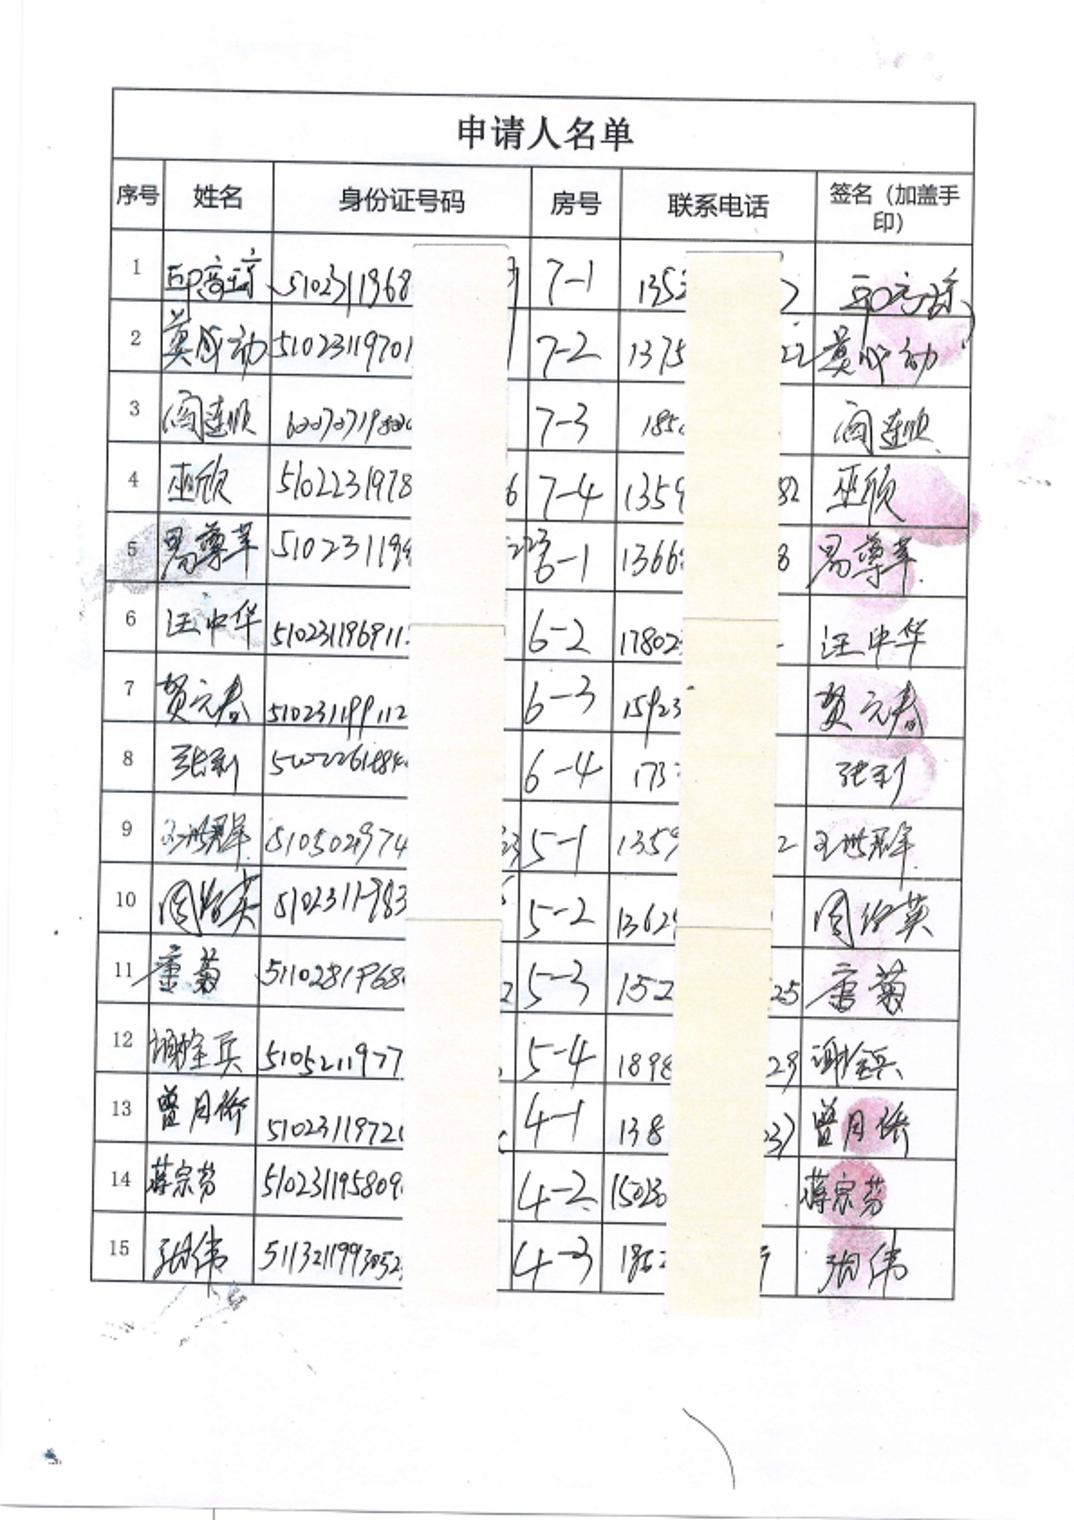 申请人名单
序号 姓名 身份证号码 房号 联系电话 签名（加盖手印）
1 5102311968 7-1 1352 7
2 莫 动 51023119701 7-2 1375 22 莫 动
3 阎连顺 7-3 185 阎连顺
4 巫欣 5102231978 6 7-4 1359 82 巫欣
5 易尊苹 510231199 223 6-1 1366 8 易尊苹
6 汪中华 510231196911 6-2 17802 汪中华
7 贺元春 510231199112 6-3 15923 贺元春
8 张利 6-4 173 张利
9 王洪 510502974 23 5-1 1359 2 王洪
10 周 英 51023111983 5-2 1362 周 英
11 唐菊 5110281968 2 5-3 152 25 唐菊
12 谢 兵 5105211977 5-4 1898 29 谢 兵
13 曾月 5102311972 4-1 138 37 曾月
14 蒋宗芳 510231195809 4-2 15023 蒋宗芳
15 胡伟 5113211993052 4-3 1862 9 胡伟